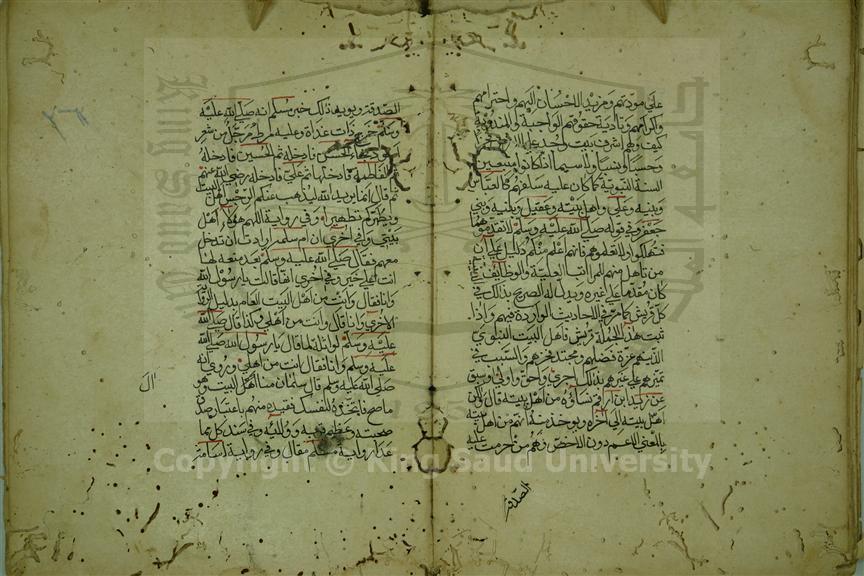 على مودتهم ومزيد الاحسان اليهم واحترامهم
واكرامهم وتادية حقوقهم الواجبة والمندوبة
كيف وهم اشرف بيت وجد على
وحسبا ونسبا ولا سيما اذا كانوا متبعين
السنة النبوية كما كان عليه سلفهم كالعباس
وبنيه وعلي واهل بيته وعقيل وبنيه وبني
جعفر وفي قوله صلى الله عليه وسلم لا تقدموهما
فتهلكوا ولا تعلموهم فانهم اعلم منكم دليل على ان
من تاهل منهم للمراتب العلية والوظائف
كان مقدما على غيره ويدل له التصريح بذلك في
كل قريش كما مر في الاحاديث الواردة فيهم واذا
ثبت هذا لجملة قريش فاهل البيت النبوي
الذين هم غرة فضلهم ومحتد فخرهم والسبب في
تميزهم على غيرهم بذلك احرى واحق واولى وسبق
عن زيد بن ارقم نساؤه من اهل بيته قال ولكن
اهل بيته الى اخره ويوخذ منه انهم من اهل بيته
بالمعنى الاعم دون الاخص وهم من حرمت عليه
الصدقة
الصدقة ويويد ذلك خبر مسلم انه صلى الله عليه
وسلم خرج ذات غداة وعليه مرط مرحل من شعر
اسود فجاء الحسن فادخله ثم الحسين فادخله
ثم فاطمة فادخلها ثم علي فادخله رضي الله عنهم
ثم قال انما يريد الله ليذهب عنكم الرجس اهل البيت
ويطهركم تطهيرا وفي رواية اللهم هولاء اهل
بيتي وفي اخرى ان ام سلمة ارادت ان تدخل
معهم فقال صلى الله عليه وسلم بعد منعه لها
انت على خير وفي اخرى انها قالت يا رسول الله
وانا فقال وانت من اهل البيت العام بدليل الرواية
الاخرى وانا قال وانت من اهلي وكذا قال صلى الله
عليه وسلم لواثلة لما قال يا رسول الله صلى الله
عليه وسلم وانا فقال انت من اهلي وروي انه
صلى الله عليه وسلم قال سلمان منا اهل البيت وهو
ناصح فاتخذوه لنفسك فعده منهم باعتبار صدق
صحبته وعظم قربه وولائه وفي سند كل ما
عدا رواية مسلم مقال وفي رواية اسامة
ال
Copyright © King Saud University